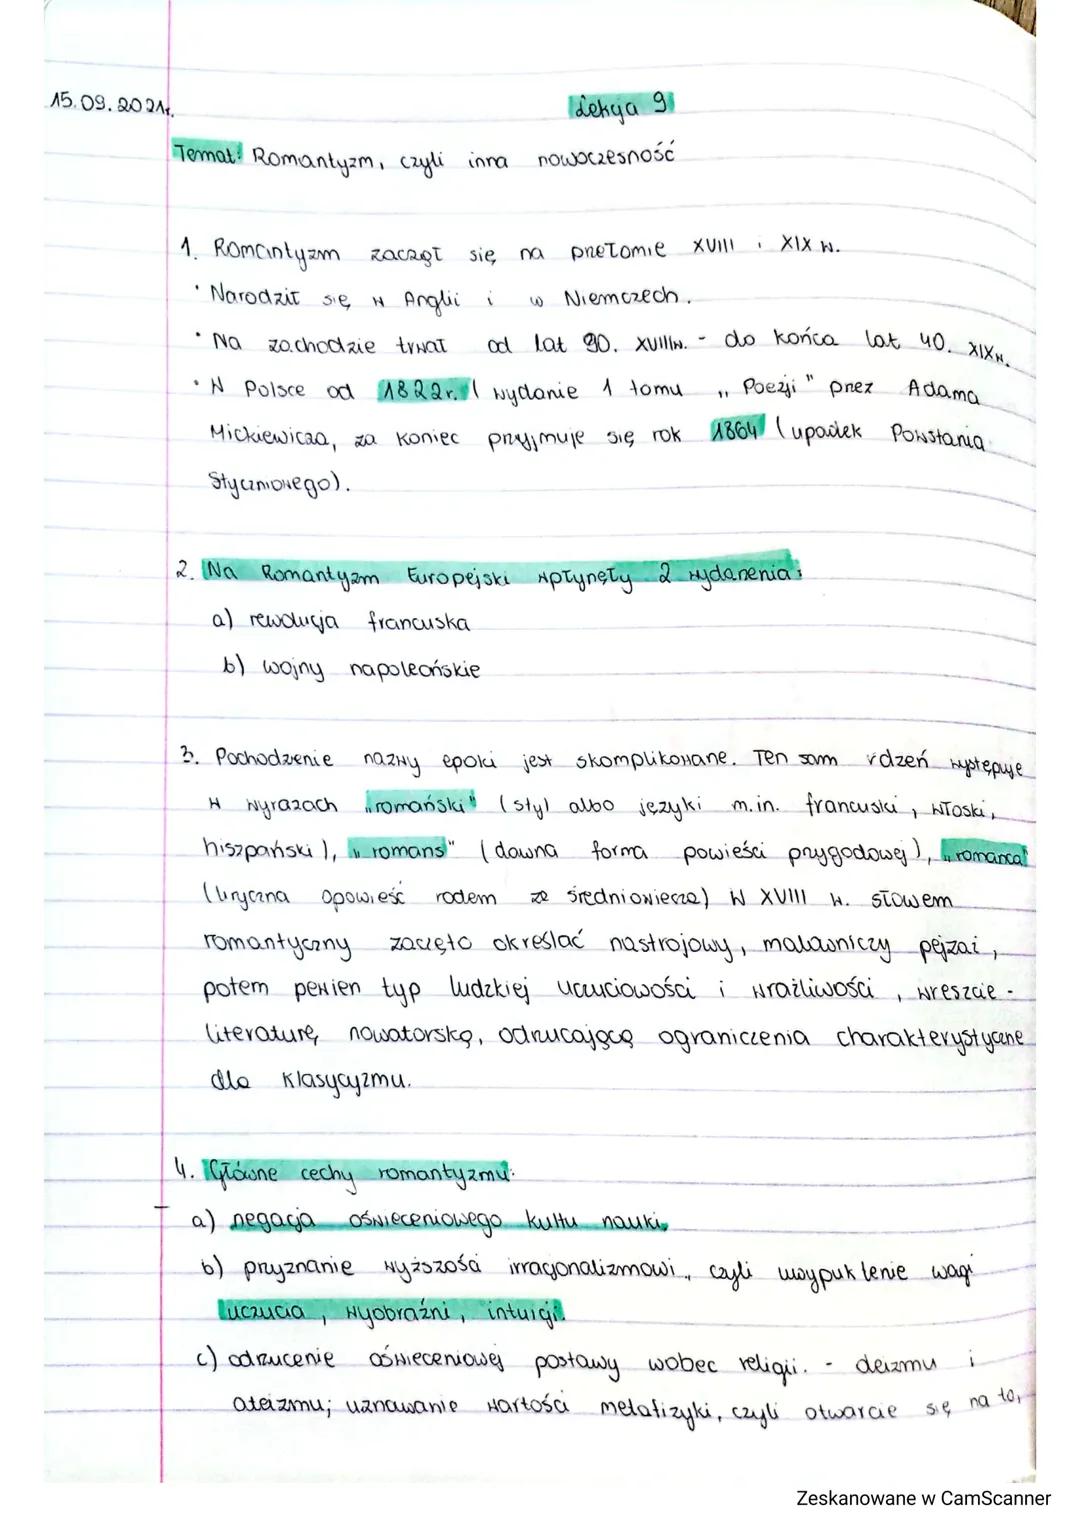 15.09.2021r.
Lekcja 9
Temat: Romantyzm, czyli inna nowoczesność
1. Romantyzm zaczął się na przełomie XVIII i XIX w.
• Narodził się w Anglii i w Niemczech.
• Na zachodzie trwał od lat 90. XVIIIw. - do końca lat 40. XIXw.
• W Polsce od 1822r. ( wydanie 1 tomu „ Poezji " przez Adama
Mickiewicza, za koniec przyjmuje się rok 1864 (upadek Powstania
Styczniowego).
2. Na Romantyzm Europejski wpłynęły 2 wydarzenia:
a) rewolucja francuska
b) wojny napoleońskie
3. Pochodzenie nazwy epoki jest skomplikowane. Ten sam rdzeń występuje
w wyrazach „romański" (styl albo języki m.in. francuski, włoski,
hiszpański), „romans" (dawna forma powieści przygodowej), „romanca"
(liryczna opowieść rodem ze średniowiecza) W XVIII w. słowem
romantyczny zaczęto określać nastrojowy, malowniczy pejzaż,
potem pewien typ ludzkiej uczuciowości i wrażliwości, wreszcie -
literaturę nowatorską, odrzucającą ograniczenia charakterystyczne
dla klasycyzmu.
4. Główne cechy romantyzmu:
a) negacja oświeceniowego kultu nauki,
b) przyznanie wyższości irracjonalizmowi, czyli uwypuklenie wagi
uczucia, wyobraźni, intuicji.
c) odrzucenie oświeceniowej postawy wobec religii. - deizmu i
ateizmu; uznawanie wartości metafizyki, czyli otwarcie się na to,
Zeskanowane w CamScanner